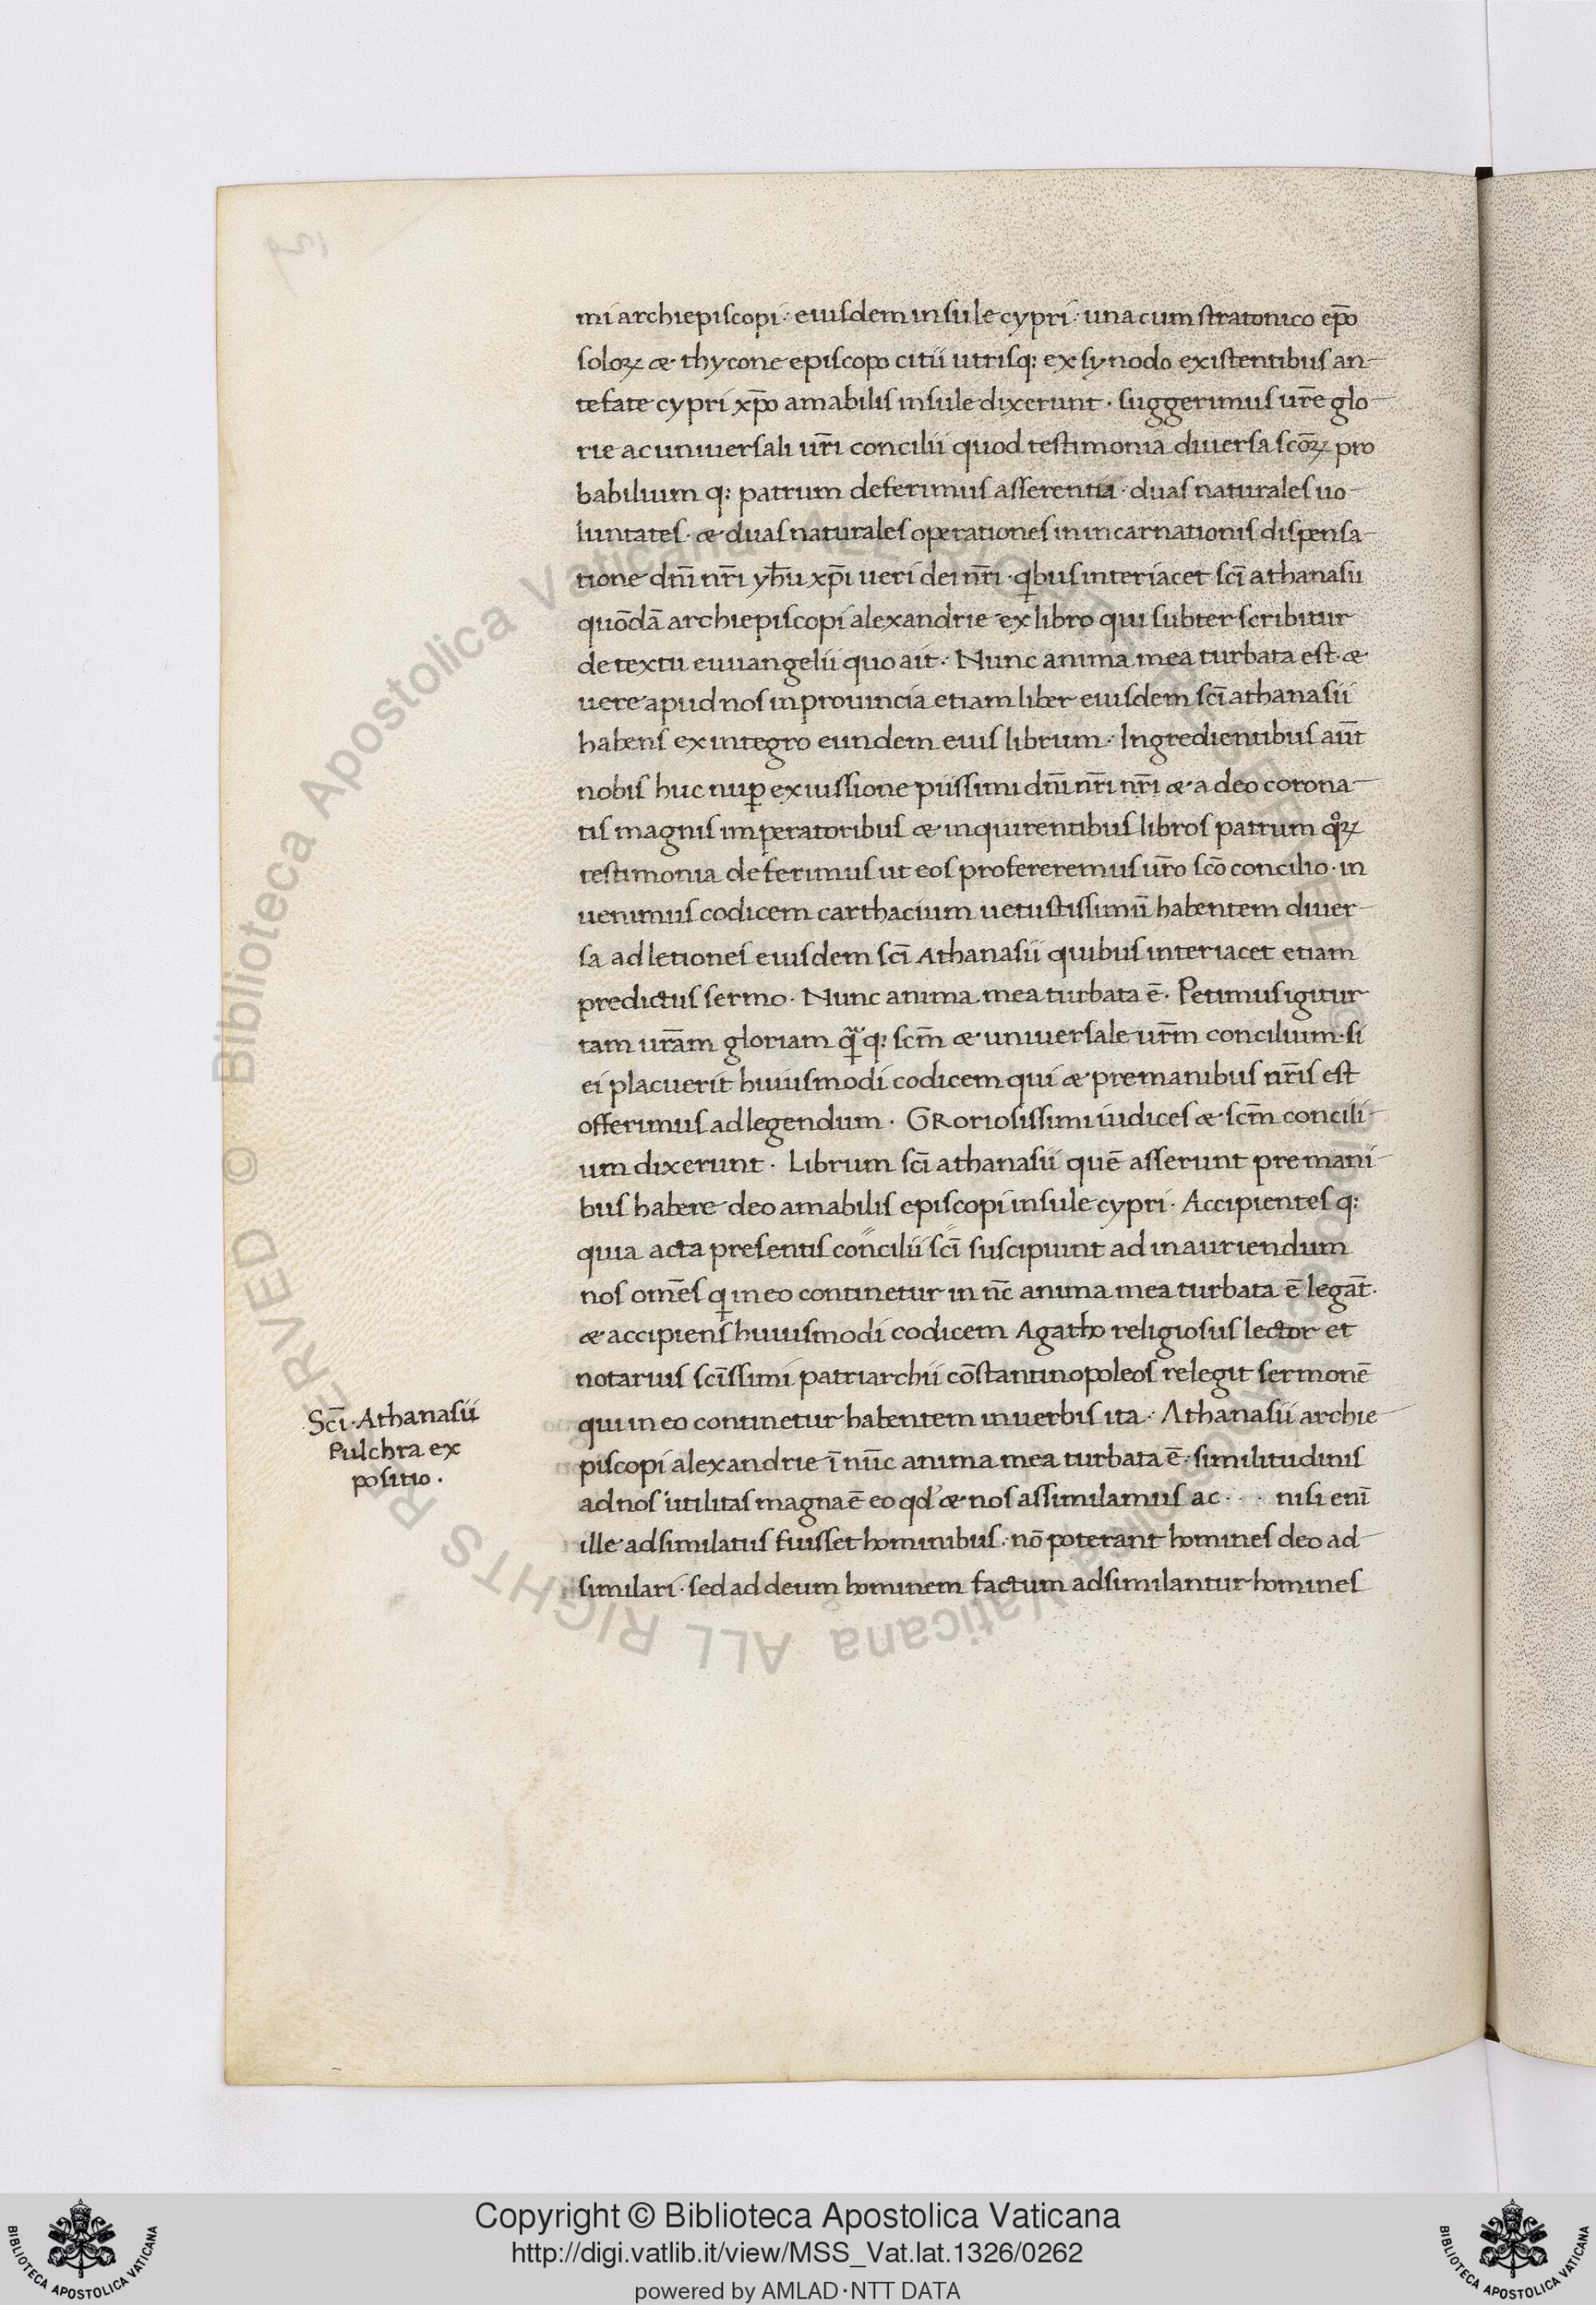 mi archiepiscopi · eiusdem insule cypri · una cum stratonico ep̄o
soloꝝ æ thycone episcopo citii utrisq: ex synodo existentibus an-
tefate cypri xp̄o amabilis insule dixerunt · suggerimus ur̄e glo-
rie ac uniuersali ur̄i concilii quod testimonia diuersa sc̄oꝝ pro
babilium q: patrum deferimus asserentia · duas naturales uo-
luntates · æ duas naturales operationes in incarnationis dispensa-
tione dn̄i nr̄i yh̄u xp̄i ueri dei nr̄i · qibus interiacet sc̄i athanasii
quōdā archiepiscopi alexandrie ex libro qui subter scribitur
de textu euuangelii quo ait · Nunc anima mea turbata est · æ
uere apud nos in prouincia etiam liber eiusdem sc̄i athanasii
habens ex integro eundem eius librum · Ingredientibus aūt
nobis huc nuꝑ ex iussione piissimi dn̄i nr̄i nr̄i æ a deo corona-
tis magnis imperatoribus æ inquirentibus libros patrum qͦꝝ
testimonia deferimus ut eos profereremus ur̄o sc̄o concilio · in
uenimus codicem carthacium uetustissimū habentem diuer-
sa ad letiones eiusdem sc̄i Athanasii quibus interiacet etiam
predictus sermo · Nunc anima mea turbata ē · Petimus igitur
tam ur̄am gloriam qᷓ q: sc̄m æ uniuersale ur̄m concilium · si
ei placuerit huiusmodi codicem qui æ pre manibus nr̄is est
offerimus ad legendum · GRoriosissimi iudices æ sc̄m concili-
um dixerunt · Librum sc̄i athanasii quē asserunt pre mani-
bus habere deo amabilis episcopi insule cypri · Accipientes q:
quia acta presentis concilii sc̄i suscipiunt ad inauriendum
nos om̄es qi in eo continetur in nc̄ anima mea turbata ē legat̄ ·
æ accipiens huiusmodi codicem Agatho religiosus lector et
notarius sc̄issimi patriarchii cōstantinopoleos relegit sermonē
qui in eo continetur habentem in uerbis ita · Athanasii archie-
piscopi alexandrie ī nūc anima mea turbata ē · similitudinis
ad nos utilitas magna ē eo qd' æ nos assimilamus ac · · · nisi enī
ille adsimilatus fuisset hominibus · nō poterant homines deo ad-
similari · sed ad deum hominem factum adsimilantur homines
Sc̄i · Athanasii
Pulchra ex
positio ·
Copyright © Biblioteca Apostolica Vaticana
http://digi.vatlib.it/view/MSS_Vat.lat.1326/0262
powered by AMLAD·NTT DATA